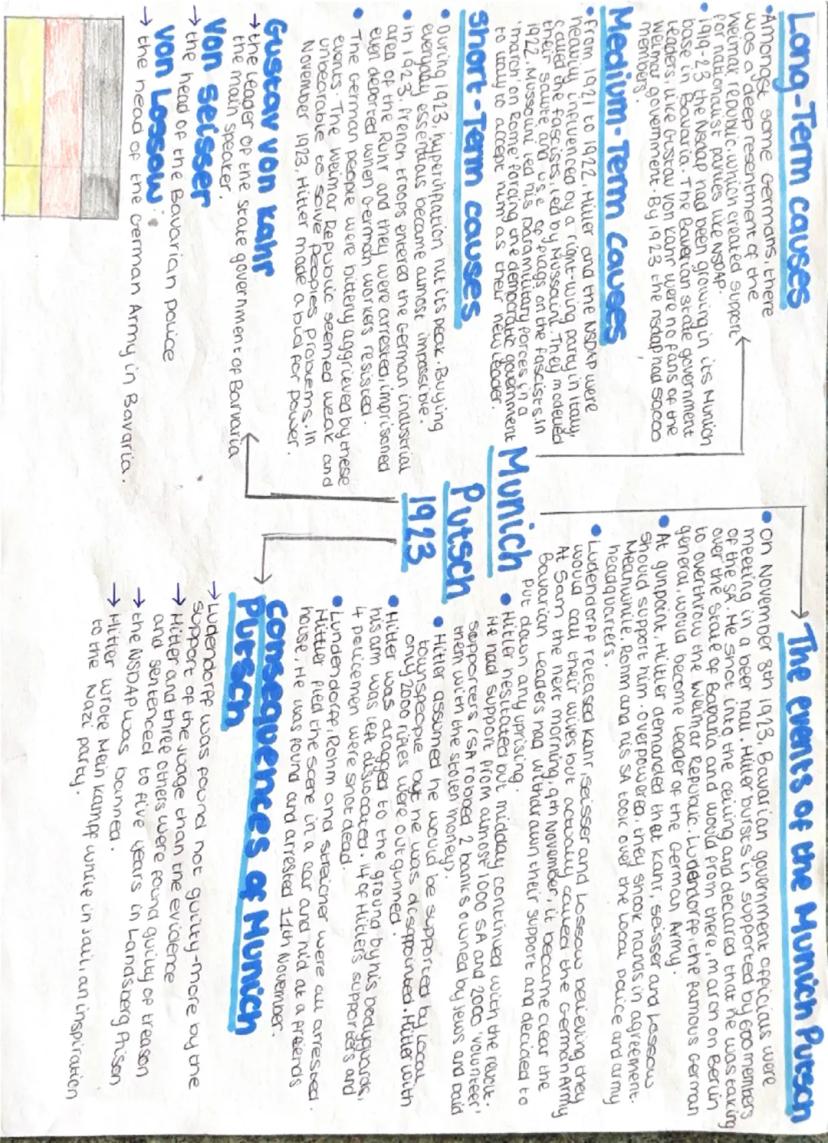 Long-Term causes
• Amongst some Germans, there
was a deep resentment of the
Weimar republic, which created support
for nationalist parties like NSDAP.
• 1919-23 the Nsdap had been growing in its Munich
base in Bavaria. The Bavarian state government
leaders, like Gustav von Kahr were no fans of the
Weimar government. By 1923 the nsdap had 50,000
members.
Medium-Term causes
• From 1921 to 1922, Hitler and the NSDAP were
heavily influenced by a right-wing party in Italy,
called the fascists, led by Mussolini. They modelled
their salute and use of flags on the fascists. In
1922, Mussolini led his paramilitary forces in a
'march on Rome' forcing the democratic government
to Italy to accept him as their new leader.
Short-Term causes
• During 1923, hyperinflation hit its peak. Buying
everyday essentials became almost impossible.
• in 1923, French troops entered the German industrial
area of the Ruhr and they were arrested, imprisoned
even deported when German workers resisted.
• The German people were bitterly aggrieved by these
events. The Weimar Republic seemed weak and
unbearable to solve peoples problems. In
November 1923, Hitler made a bid for power.
Gustav von Kahr
→ the leader of the state government of Barvaria
the main speaker.
Von Seisser
→ the head of the Bavarian police
von Lossow:
→ the head of the German Army in Bavaria.
Munich
Putsch
1923
The events of the Munich Putsch
• On November 8th 1923, Bavarian government officials were
meeting in a beer hall. Hitler bursts in supported by 600 members
of the SA. He shot into the ceiling and declared that he was taking
over the state of Bavaria and would from there, march on Berlin
to overthrow the Weimar Republic. Ludendorff, the famous German
general, would become leader of the German Army.
• At gunpoint, Hitler demanded that Kahr, Seisser and Lossow
should support him. overpowered, they shook hands in agreement.
Meanwhile, Rohm and his SA took over the local police and army
headquarters.
• Ludendorff released Kahr, Seisser and Lossow believing they
would call their wives but actually called the German Army
At 5am the next morning, 9th November, it became clear the
Bavarian leaders had withdrawn their support and decided to
put down any uprising.
• Hitler hesitated but midday continued with the revolt.
He had support from almost 1000 SA and 2000 'volunteer'
supporters (SA robbed 2 banks owned by Jews and paid
them with the stolen money).
• Hitler assumed he would be supported by local
townspeople but he was disappointed. Hitler with
only 2000 rifles were outgunned.
• Hitler was dragged to the ground by his bodyguards,
his arm was left dislocated. 14 of Hitlers supporters and
4 policemen were shot dead.
• Lundendorff, Rohm and streicher were all arrested.
Hittler fled the scene in a car and hid at a freinds
house. He was found and arrested 11th November.
Consequences of Munich
Putsch
→ Ludendorff was found not guilty - more by the
support of the judge than the evidence
→ Hitler and three others were found guilty of treason
and sentenced to five years in Landsberg Prison
→ the NSDAP was banned.
→ Hitler wrote Mein Kampf while in jail, an inspiration
to the Nazi party.